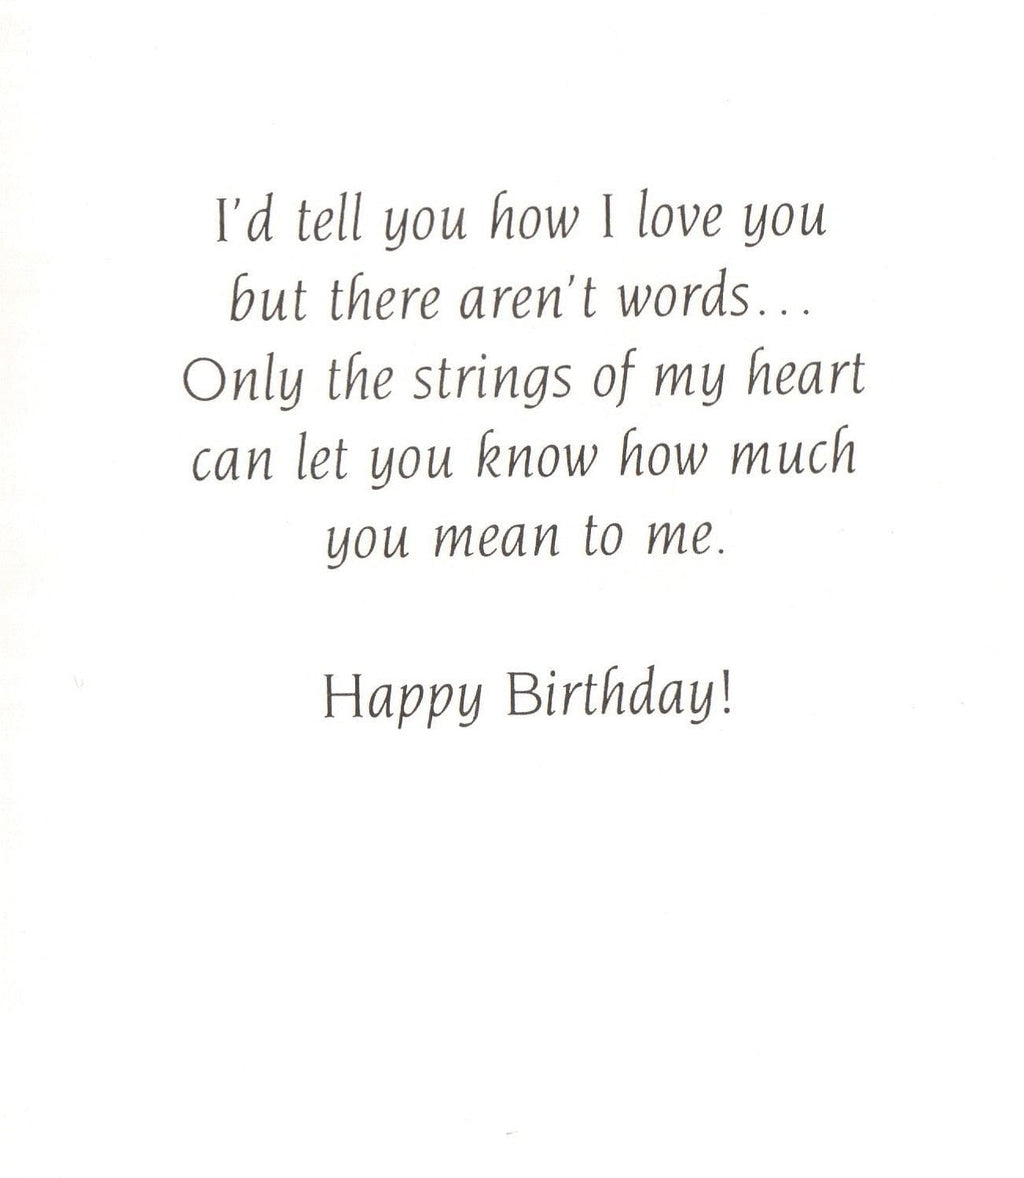 I'd tell you how I love you
but there aren't words...
Only the strings of my heart
can let you know how much
you mean to me.
Happy Birthday!